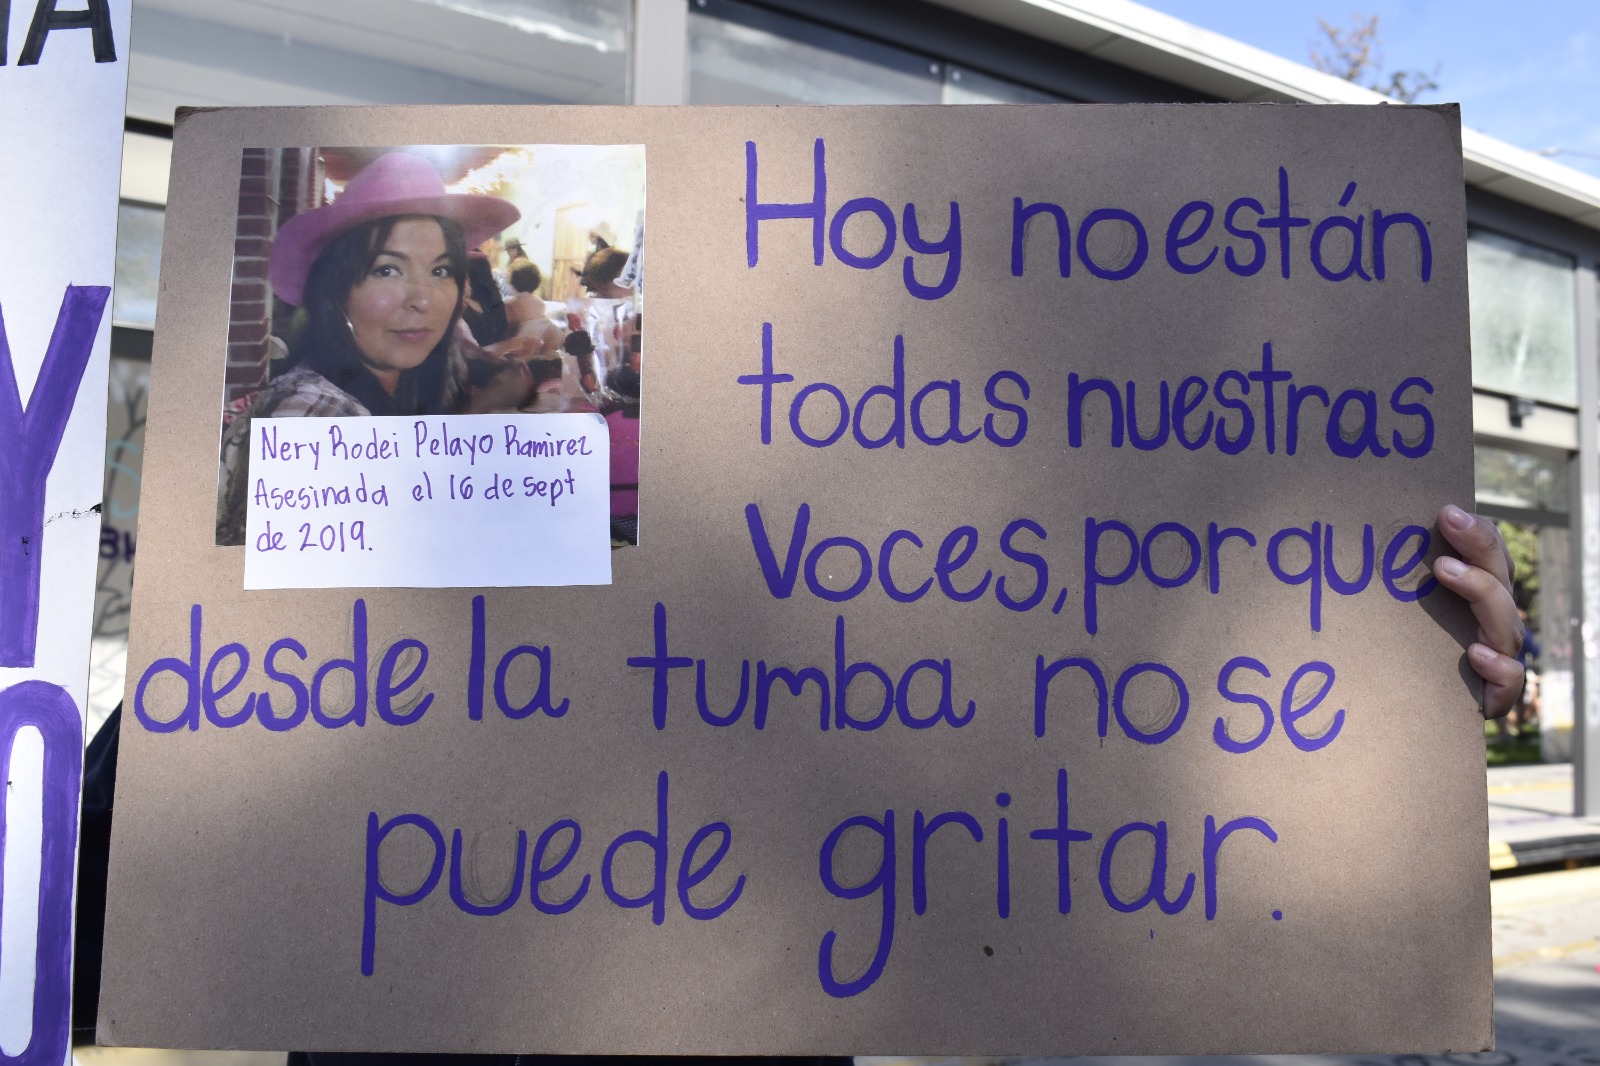 Hoy no están
todas nuestras
Voces, porque
desde la tumba no se
puede gritar.
Nery Rodei Pelayo Ramirez
Asesinada el 16 de sept
de 2019.
A
Y
O